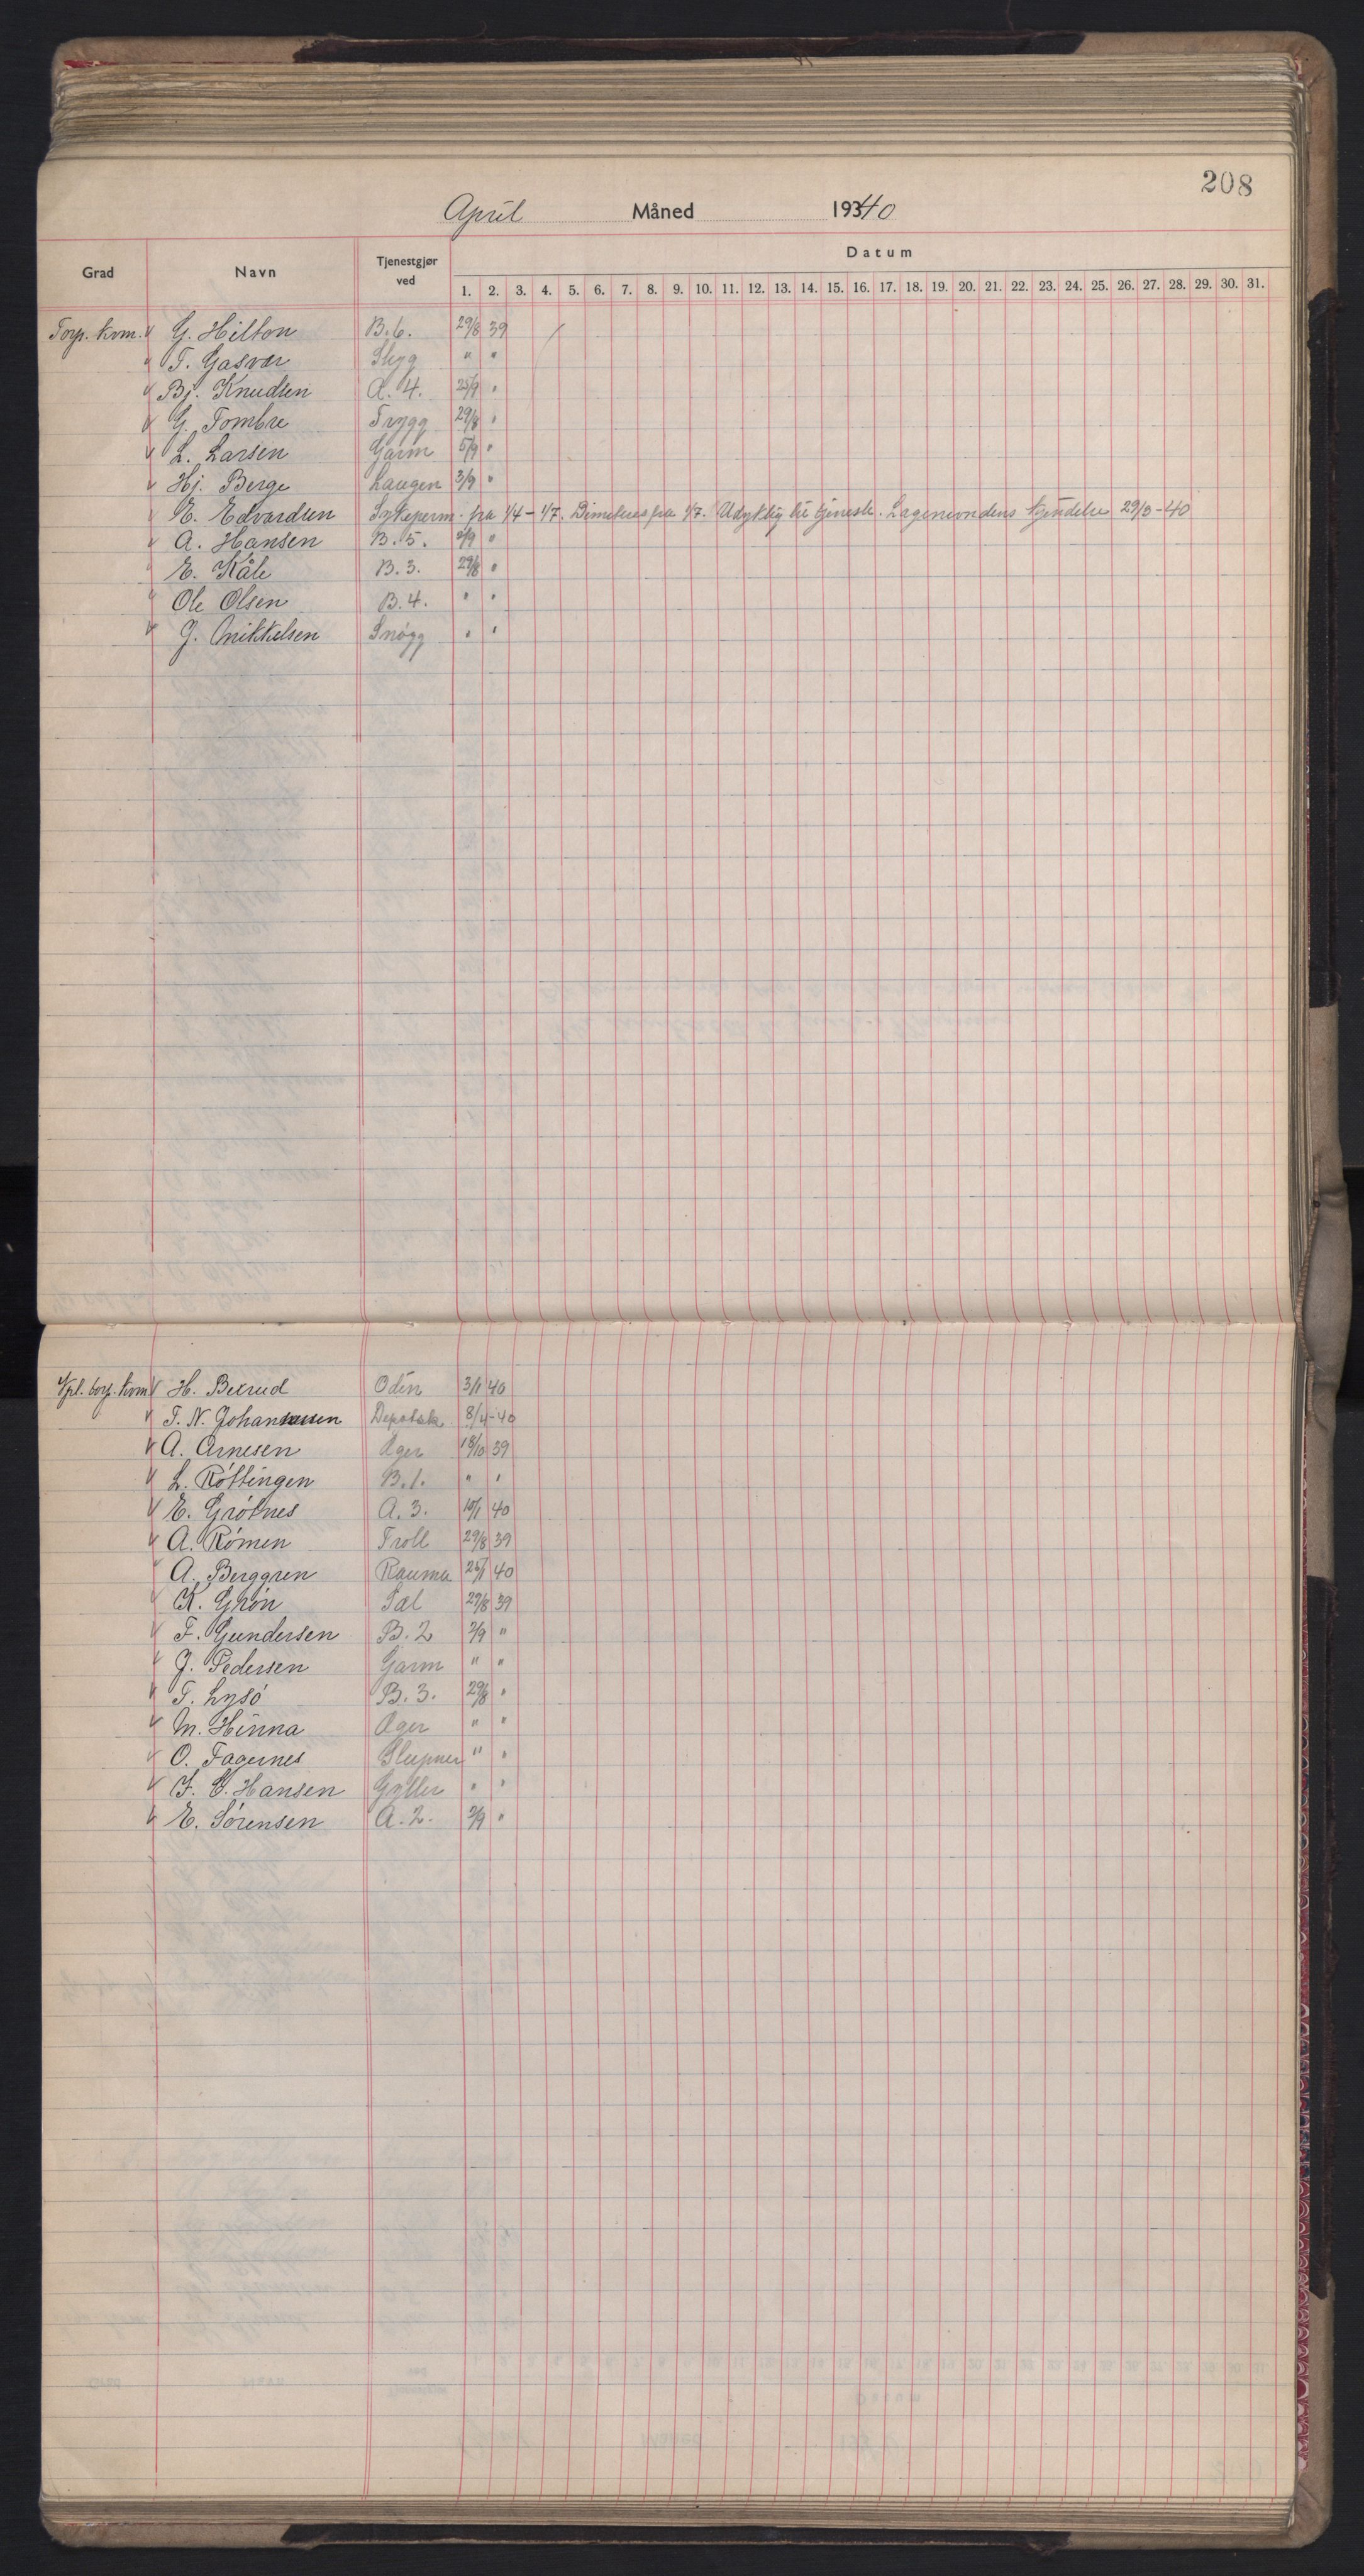 208
April Måned 19340
Grad Navn Tjenestgjør ved Datum
1. 2. 3. 4. 5. 6. 7. 8. 9. 10. 11. 12. 13. 14. 15. 16. 17. 18. 19. 20. 21. 22. 23. 24. 25. 26. 27. 28. 29. 30. 31.
Torp. kvm. G. Hilton B.6. 29/8 39
T. Gasvær Skgg " "
Bj. Knudsen A. 4. 25/9 "
G. Tombre Trygg 29/8 "
L. Larsen Garm 5/9 "
Hj. Berge Laugen 3/9 "
E. Edvardsen Sykeperm. fra 1/4 - 1/7. Dimitteres fra 1/7. Udyktig til tjeneste. Legenevndens kjendelse 29/3-40
A. Hansen B. 5. 2/9 "
E. Kåle B. 3. 29/8 "
Ole Olsen B. 4. " "
J. Mikkelsen Snøgg " "
Vpl. torp. kvm. H. Bexrud Odin 3/1 40
T. N. Johannessen 8/4-40
A. Arnesen Æger 18/10 39
L. Røttingen B.1. " "
E. Grøtnes A. 3. 10/1 40
A. Rømen Troll 29/8 39
A. Berggren Rauma 25/1 40
K. Grøn Sæl 29/8 39
F. Gundersen B. 2 2/9 "
J. Pedersen Garm " "
T. Lysø B. 3. 29/8 "
M. Hinna Æger " "
O. Fagernes Sleipner " "
F. G. Hansen Gyller " "
E. Sørensen A. 2. 2/9 "